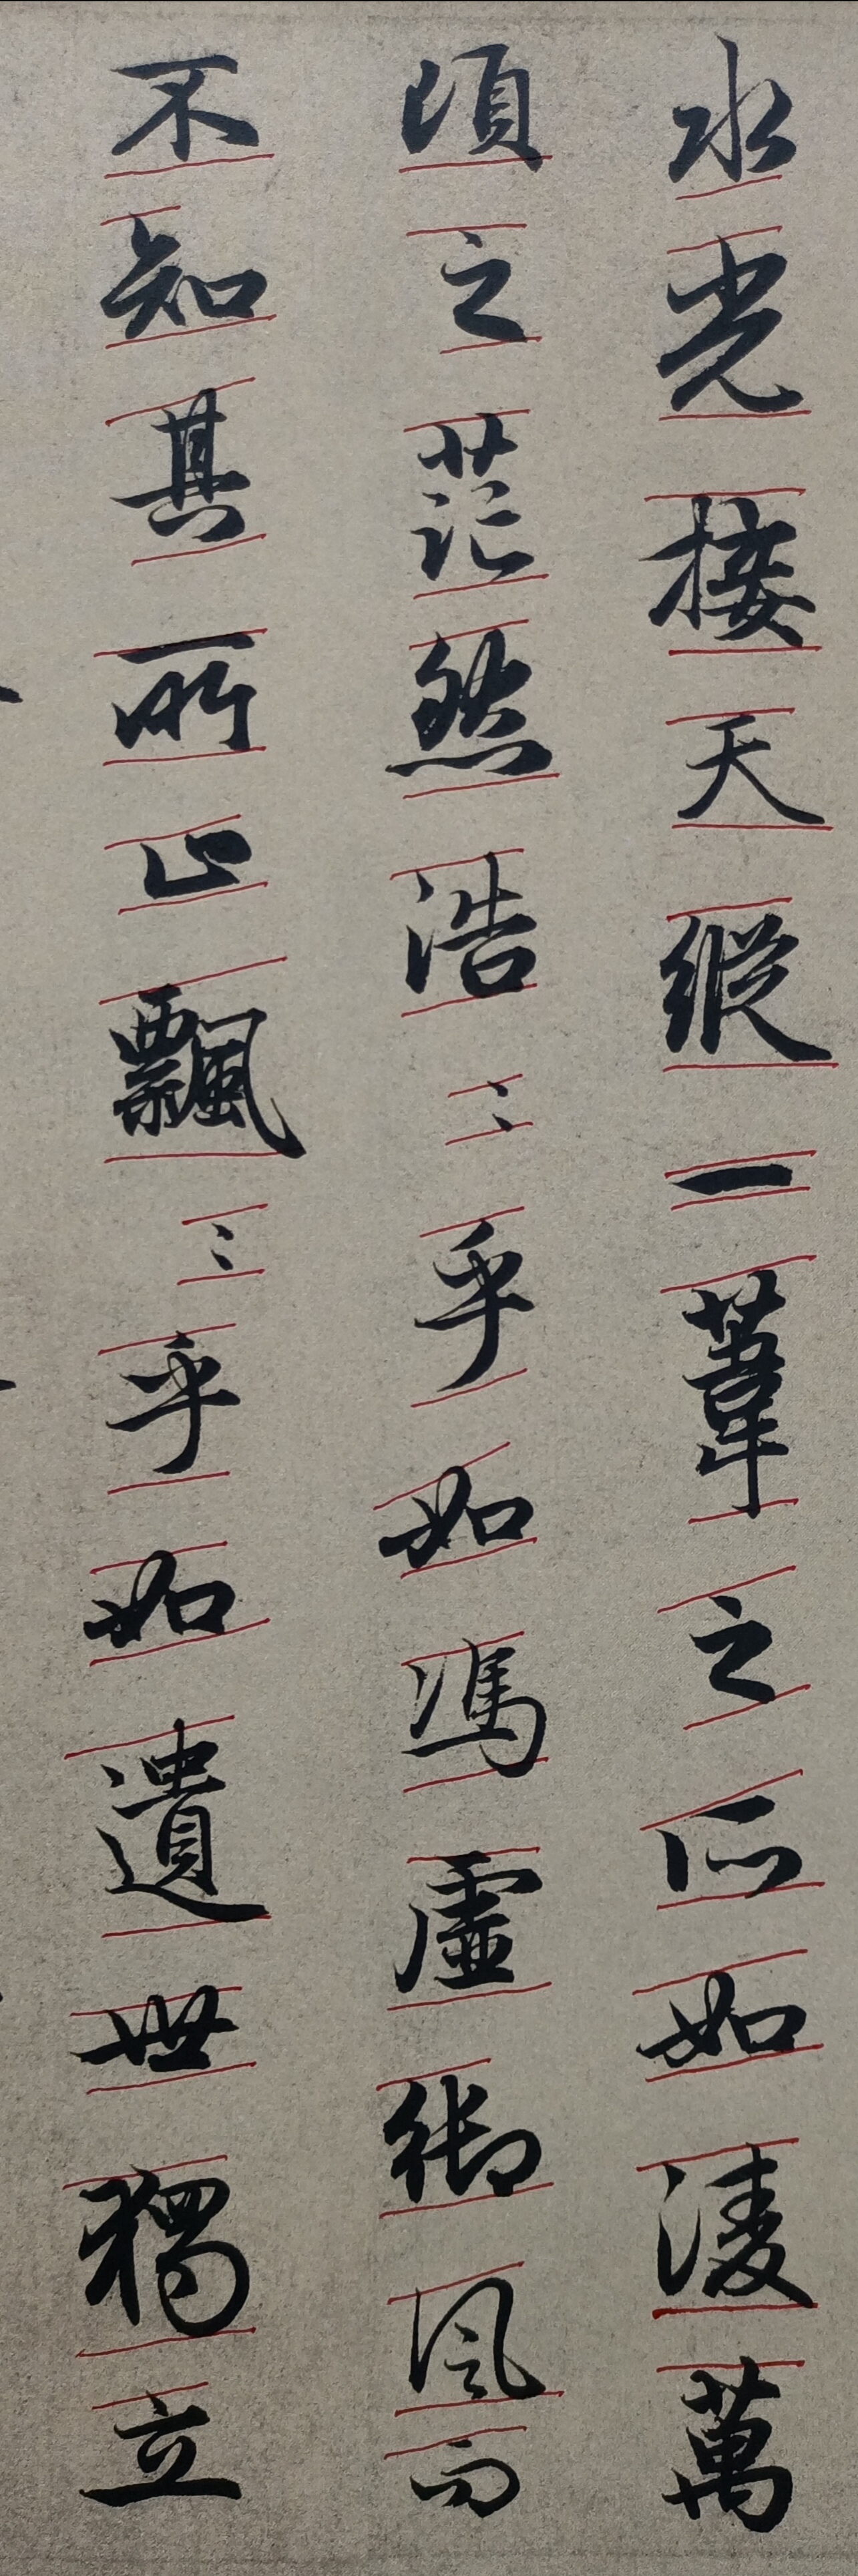 水光接天縱一葦之所如淩萬
頃之茫然浩〻乎如馮虛御風而
不知其所止飄〻乎如遺世獨立